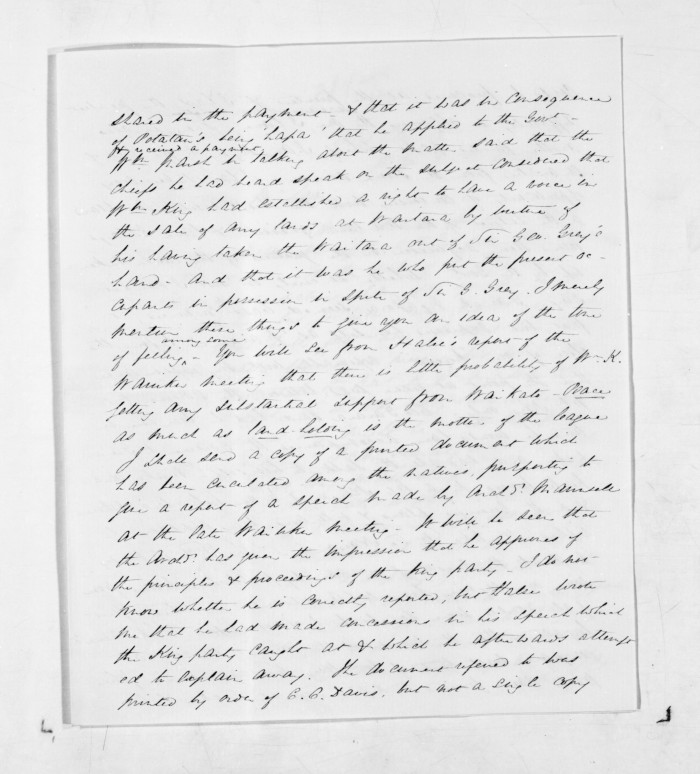 shared in the payment - & that it was in consequence
of Potatau's being "hapa" that he applied to the Govt -
& received a payment
Wm Marsh in talking about the matter said that the
chiefs he had heard speak on the subject considered that
Wm King had established a right to have a voice in
the sale of any lands at Waitara by virtue of
his having taken the Waitara out of Sir Geo. Grey's
hand - and that it was he who put the present oc-
cupants in possession in spite of Sir G. Grey. I merely
mention these things to give you an idea of the tone
among some
of feeling - You will see from Halse's report of the
Waiuku meeting that there is little probability of Wm K.
getting any substantial support from Waikato - Peace
as much as land-holding is the motto of the league
I shall send a copy of a printed document which
has been circulated among the natives, purporting to
give a report of a speech made by Archdn. Maunsell
at the late Waiuku meeting - It will be seen that
the Archdn. has given the impression that he approves of
the principles & proceedings of the King party - I do not
know whether he is correctly reported, but Halse wrote
me that he had made concessions in his speech which
the King party caught at & which he afterwards attempt
ed to explain away. The document referred to was
printed by order of C. O. Davis, but not a single copy